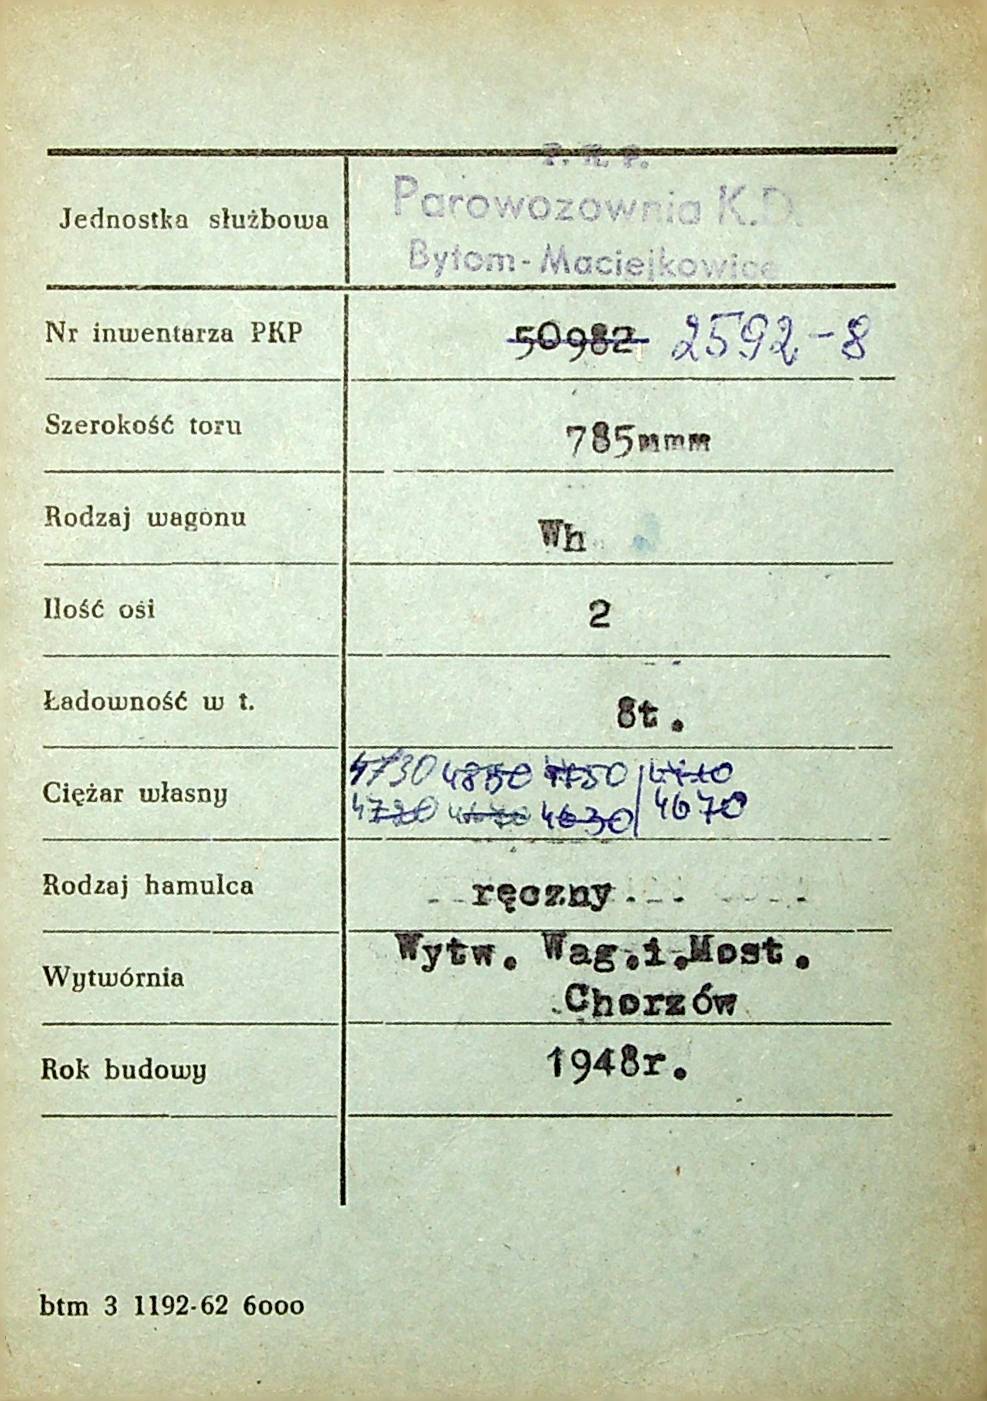 P. K. P.
Parowozownia K.D.
Jednostka służbowa
Bytom-Maciejkowice
Nr inwentarza PKP 50982 2592-8
Szerokość toru 785mmm
Rodzaj wagonu Wh
Ilość osi 2
Ładowność w t. 8t.
4730 4850 4750
Ciężar własny
4720 4630 4670
Rodzaj hamulca ręczny
Wytw. Wag.i.Most.
Wytwórnia
Chorzów
Rok budowy 1948r.
btm 3 1192-62 6000